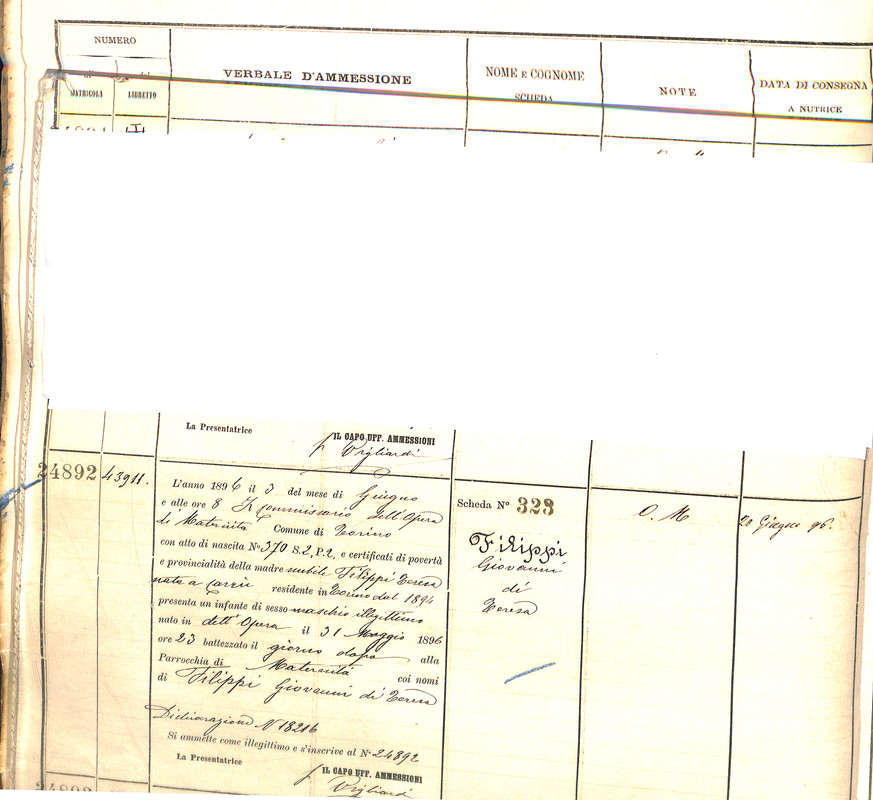 NUMERO
di del
MATRICOLA LIBRETTO
VERBALE D'AMMESSIONE
NOME E COGNOME
SCHEDA
NOTE
DATA DI CONSEGNA
A NUTRICE
La Presentatrice
IL CAPO UFF. AMMESSIONI
Vigliardi
24892 43911.
L'anno 1896 il 3 del mese di Giugno
e alle ore 8 Il Commissario dell'Opera
di Maternità Comune di Torino
con atto di nascita N° 370 S. 2, P. 2, e certificati di povertà
e provincialità della madre nubile Filippi Teresa
nata a Carrù residente in Torino dal 1894
presenta un infante di sesso maschio illegittimo
nato in dett'Opera il 31 Maggio 1896
ore 23 battezzato il giorno dopo alla
Parrocchia di Maternità coi nomi
di Filippi Giovanni di Teresa
Dichiarazione N 18216
Si ammette come illegittimo e s'inscrive al N° 24892
La Presentatrice
IL CAPO UFF. AMMESSIONI
Vigliardi
Scheda N° 328
Filippi
Giovanni
di
Teresa
O. M
20 Giugno 96.